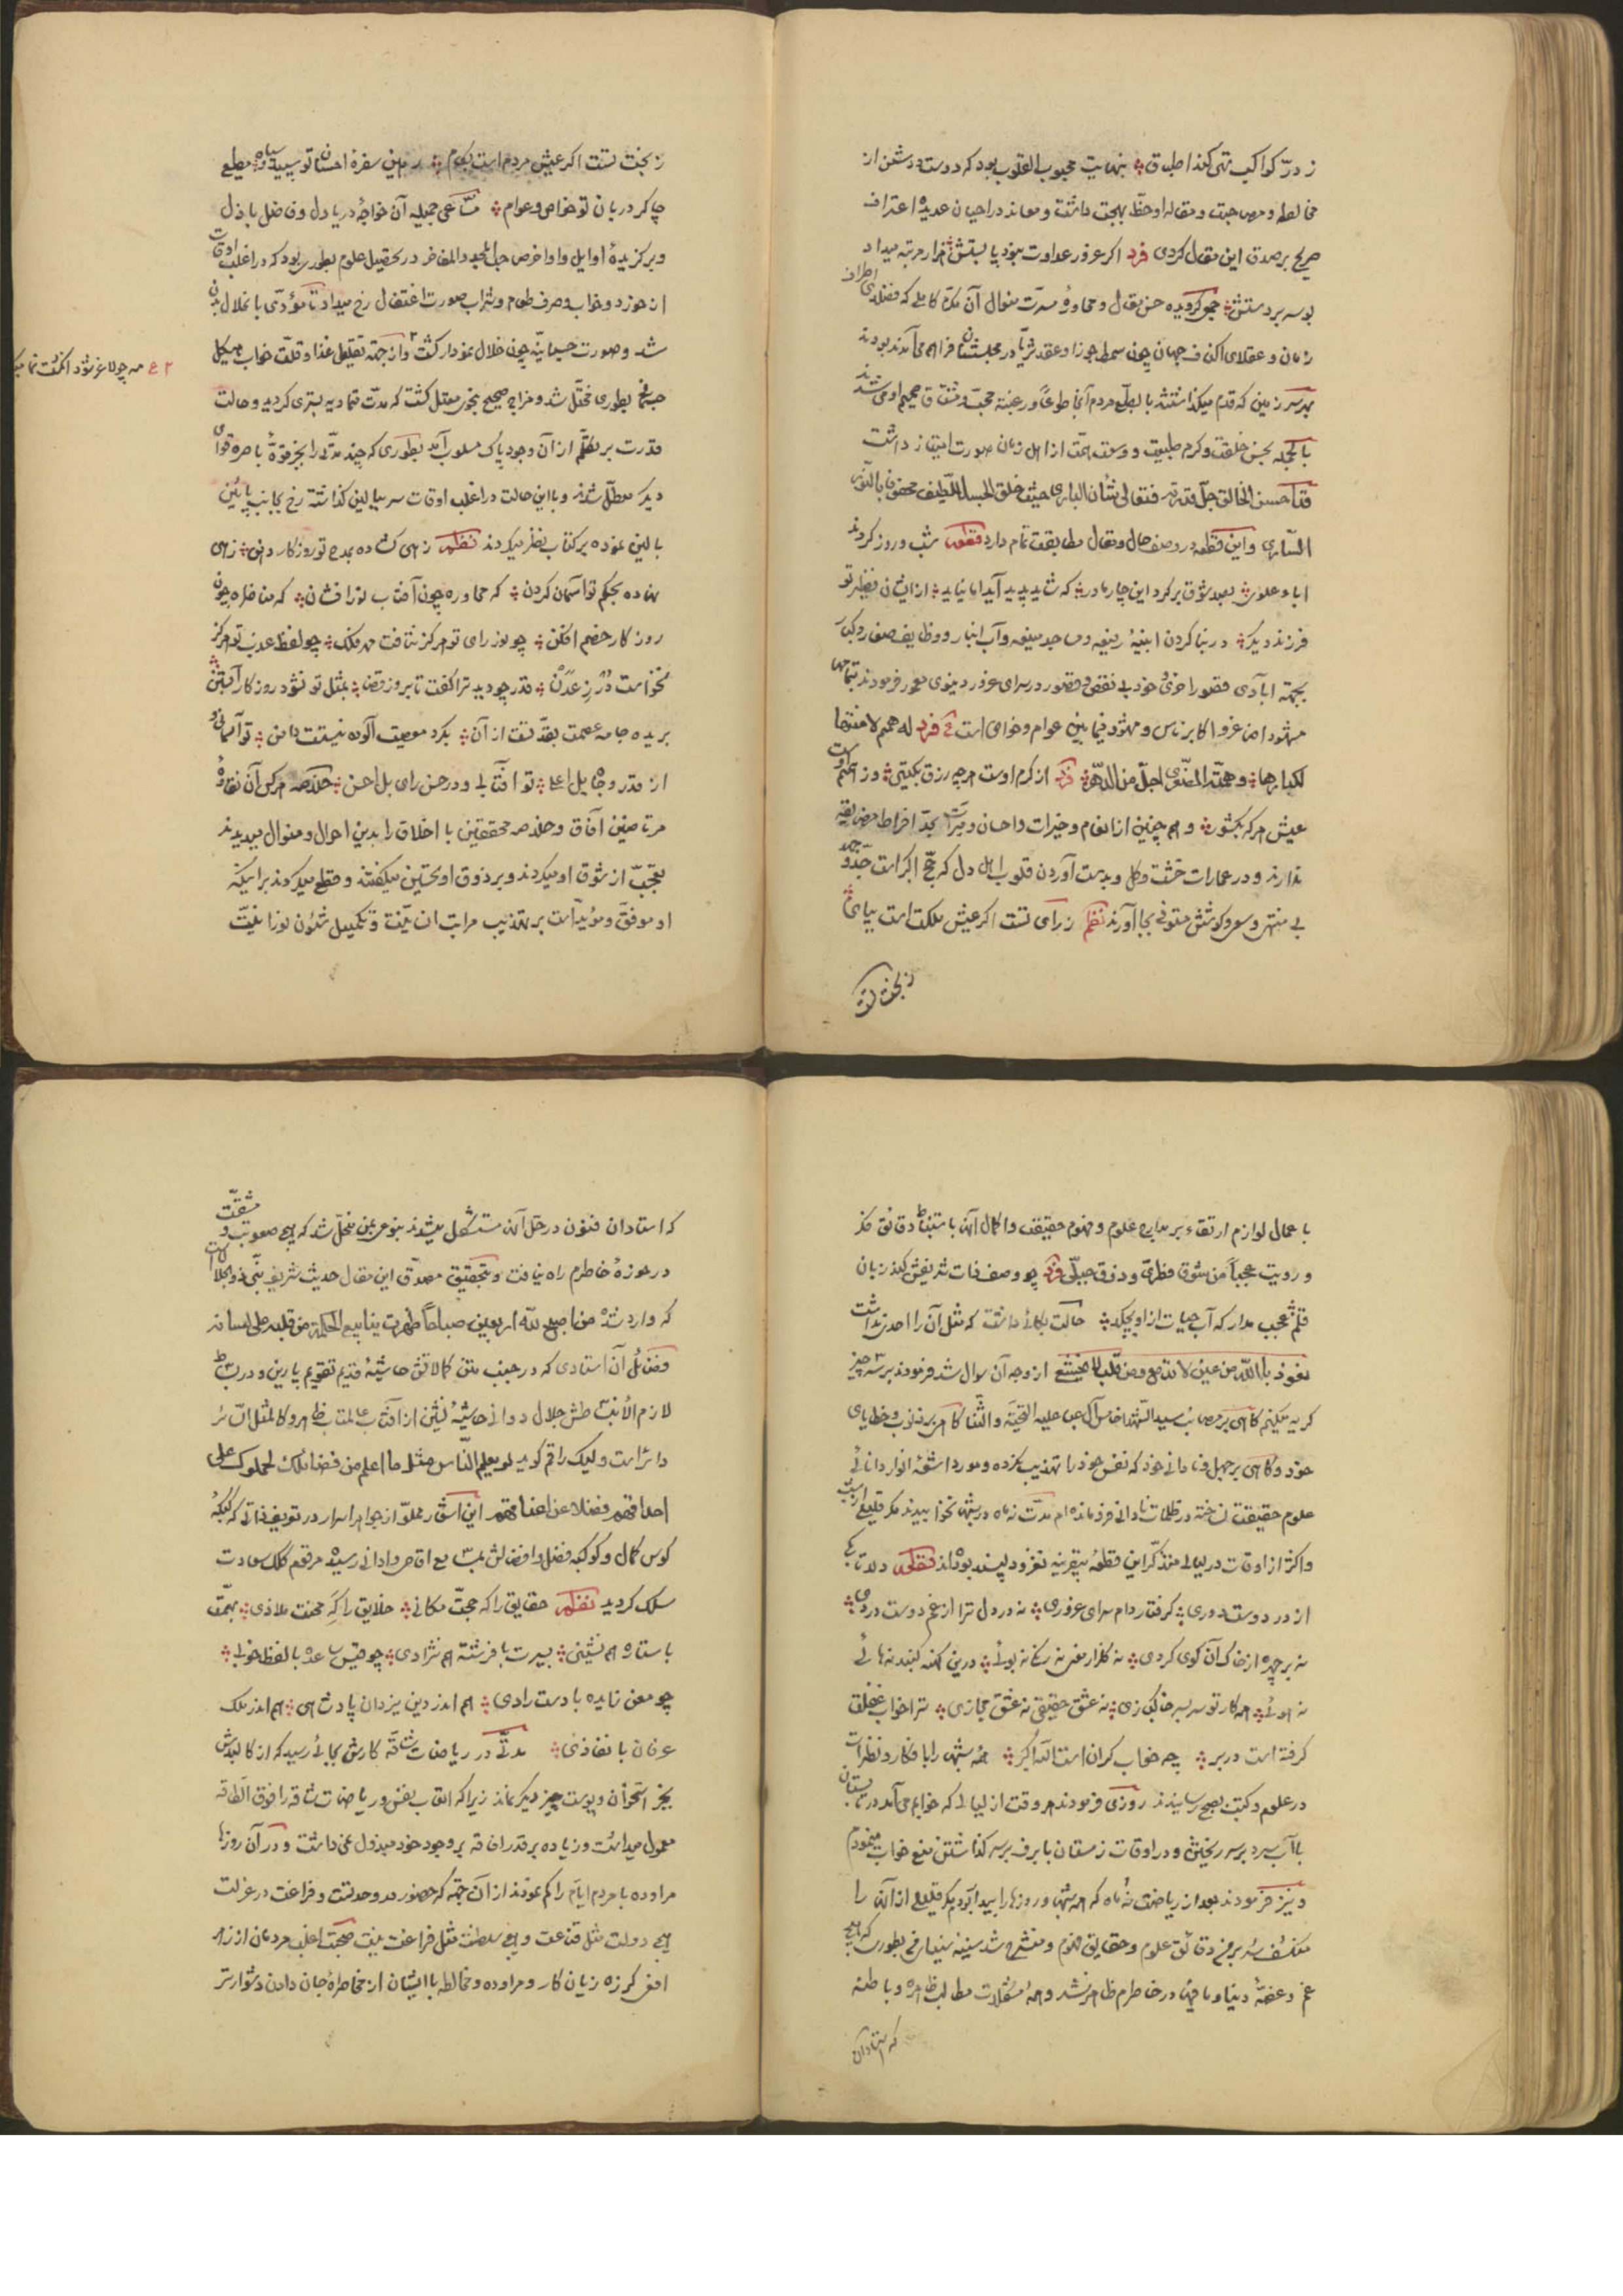 ز درّ کواکب تهی کند اطباق بنهایت محبوب القلوب بود که دوست و دشمن از
مخالطه و مصاحبت و مقاله او حظّ بهجت داشت و معاند در احیان عدیده اعتراف
صریح بر صدق این مقال کردی فرد اگر عدو ز عداوت نبود پا بستش هزار مرتبه میداد
بوسه بر دستش جمع گردیده حسن مقال و محاوره مسرّت منوال آن مکرّم کاملی که فضلای اطراف
زمان و عقلای اکناف جهان چون سمط جوزا و عقد ثریّا در مجلسشان فراهم می آمدند بودند
بهر سرزمین که قدم میگذاشتند بالطبع مردم آنجا طوعاً و رغبة محبّ و مشتاق صمیم او می شدند
بالجمله بحسن خلقت و کرم طبیعت و وسعت همّت از اهل زمان صورت امتیاز داشت
فما احسن الخالق جلّ قدرته فتعالی شأن الباری حیث خلق الجسد اللّطیف محفوفا بالنّور
السّاری و این قطعه در وصف حال و مقال مطابقت تمام دارد قطعه شب و روز کردند
اباء علوی بصد شوق بر گرد این چار مادر که شاید پدید آید اما نیاید از ایشان نظیر تو
فرزند دیگر در بنا کردن ابنیۀ رفیعه و مساجد منیعه و آب انبار و وظایف صغار و کبار
بجهة ابادی قصور اخروی خود بی نقص و قصور در سرای غرور دنیوی معمور فرمودند بتمامها
مشهود اصاغر و اکابر ناس و معهود فیمابین عوام و خواص است ع فرد له همم لا منتهی
لکبارها و همته الصغری اجلّ من الدّهر فرد از کرم اوست هر چه رزق بگیتی وز همم اوست
عیش هر که بکشور و همچنین از انعام و خیرات و احسان و مبرّات بحدّ افراط مضایقه
ندارند و در عمارات خشت و گل و بدست آوردن قلوب اهل دل که حجّ اکبر است جدّ و جهد
بی منتهی و سعی و کوشش مستوفی بجا آورند نظم ز رای تست اگر عیش مملکت است بپای
ز بخت تست
ز بخت تست اگر عیش مردم است بکام رهین سفرۀ احسان تو سپید و سیاه مطیع
چاکر دربان تو خواص و عوام مساعی جمیله آن خواجۀ دریا دل و فاضل باذل
و برگزیدۀ اوایل و اواخر من حبل المجد و المفاخر در تحصیل علوم بطوری بود که در اغلب اوقات
از خورد و خواب و صرف طعام و شراب صورت اغتفال رخ میداد تا مؤدّی بانحلال بدن
شد و صورت جسمانیّه چون خلال نمودار گشت و از جهة تقلیل غذا و قلّت خواب هیکل
۲ ع مه چو لاغر شود انگشت نما میگردد
جسمانی بطوری مختلّ شد و مزاج صحیح بنحوی معتل گشت که مدّت تمادیه بستری گردید و حالت
قدرت بر تکلّم از آن وجود پاک مسلوب آمد بطوری که چند مدّتی را بجز قوۀ باصره قوای
دیگر معطّل شدند و با این حالت در اغلب اوقات سر ببالین گذاشته رخ بجانب پایین
بالین نموده بر کتاب نظر میکردند نظم زهی گشاده بمدح تو روزگار دهن زهی
نهاده بحکم تو آسمان گردن گه محاوره چون آفتاب نور افشان گه مناظره چون
روزگار خصم افکن چو نور رای تو هرگز نتافت مه ز فلک چو لفظ عذب تو هرگز
نخواست درّ ز عدن قدر چو دید ترا گفت تا بروز قضا بمثل تو نشود روزگار آبستن
بریده جامه عصمت بقدّ تست از آن بگرد معصیت آلوده نیستت دامن تو آسمانی و
از قدر و جاه بل اعلا تو آفتابی و در حسن رای بل احسن خلاصه هر کس آن نقاوۀ
مرتاضین آفاق و خلاصه محققین با اخلاق را بدین احوال و منوال میدیدند
تعجّب از شوق او میکردند و بر ذوق او تحسین میگفتند و قطع میکردند بر اینکه
او موفّق و مؤیّد است بر تهذیب مراتب انسانیّت و تکمیل شئون نورانیّت
با عمال لوازم ارتقاء بر مدارج علوم و فهوم حقیقت و اکمال آن باستنباط دقائق فکر
و رویت عجباً من شوق فطریّ و ذوق جبلّی فرد چو وصف ذات شریفش کند زبان
قلم عجب مدار که آب حیات از او بچکد حالت بکائی داشت که مثل آن را احدی نداشت
نعوذ باللّه من عین لا تدمع و من قلب لا یخشع از وجه آن سوال شد فرمودند بر سه چیز
گریه میکنم گاهی بر مصائب سید الشهدا خامس آل عبا علیه التحیّة و الثّنا گاهی بر ذنوب و خطایای
خود و گاهی بر جهل و نادانی خود که نفس خود را تهذیب نکرده و مورد اشعّه انوار دانائی
علوم حقیقت نساخته در ظلمات نادانی فرو مانده ام مدّت نه ماه در شبها نخوابیدند مگر قلیلی از شب
و اکثر از اوقات در لیالی متذکّر این قطعۀ بیقرینه نغز و دلپسند بوده اند نظم دلا تا بکی
از در دوست دوری گرفتار دام سرای غروری نه در دل ترا از غم دوست دردی
نه بر چهره از خاک آن کوی گردی نه گلزار معنی نه رنگی نه بوئی درین کهنه گنبد نه هائی
نه هوئی همه کار تو سربسر خاکبازی نه عشق حقیقی نه عشق مجازی ترا خواب غفلت
گرفته است در بر چه خواب گران است اللّه اکبر همه شبها را بافکار و نظرات
در علوم و کتب بصبح رسانیدند روزی فرمودند هر وقت از لیالی که خوابم می آمد در تابستان
با آب سرد بر سر ریختن و در اوقات زمستان با برف بر سر گذاشتن منع خواب مینمودم
و نیز فرمودند بعد از ریاضت نه ماه که همه شبها و روزها را بیدار بودم مگر قلیلی از آن را
منکشف شد بر من دقائق علوم و حقایق فهوم و منشرح شد سینه بینه معارفی بطوری که هیچ
غم و غصّۀ دنیا و مافیها در خاطرم ظاهر نشد و همۀ مشکلات مطالب ظاهره و باطنه
که استادان
که استادان فنون در حلّ آن مستشکل میشدند بنوعی بمن منحلّ شد که هیچ صعوبت و مشقّت
در حوزۀ خاطرم راه نیافت و بتحقیق مصدّق این مقال حدیث شریف نبّی ذو الجلال است
که وارد شده من اصبح للّه اربعین صباحاً ظهرت ینابیع الحکمة من قلبه علی لسانه
فضائل آن استادی که در جنب متن کمالاتش حاشیۀ قدیم تقویم پارین و در بساط
لازم الانبساطش جلال دوانی حاشیۀ نشین از آفتاب عالمتاب ظاهر و کالمثل السّائر
دائر است ولیک راقم گوید لو یعلم النّاس مثل ما اعلم من فضائلک لحملوک علی
احداقهم فضلا عن اعناقهم این اشعار مملوّ از جواهر اسرار در توصیف ذاتی که کبکبۀ
کوس کمال و کوکبه فضل و افضالش بمسامع اقاصی و ادانی رسیده مرقوم کلک سعادت
سلک گردید نظم حقایق را که حجّت مکانی خلایق را گه محنت ملاذی بهمّت
با ستاره هم نشینی بسیرت با فرشته هم نژادی چو قیس ساعده با لفظ خوبی
چو معن زایده با دست رادی هم اندر دین یزدان پادشاهی هم اندر ملک
عرفان با نفاذی مدتّی در ریاضات شاقّه کارش بجائی رسید که از کالبدش
بجز استخوان و پوست چیز دیگر نماند زیرا که اتعاب نفس و ریاضات شاقه را فوق الطاقه
معمول میداشت و زیاده بر قدر افاقه بر وجود خود مبذول نمی داشت و در آن روزها
مراوده با مردم ایّام را کم نمودند از آن جهة که حضور در وحدتست و فراغت در عزلت
هیچ دولت مثل قناعت و هیچ سلطنت مثل فراغت نیست صحبت اغلب مردمان از زهر
افعی گرزه زیان کار و مراوده و مخالطه با ایشان از مخاطرۀ جان دادن دشوارتر